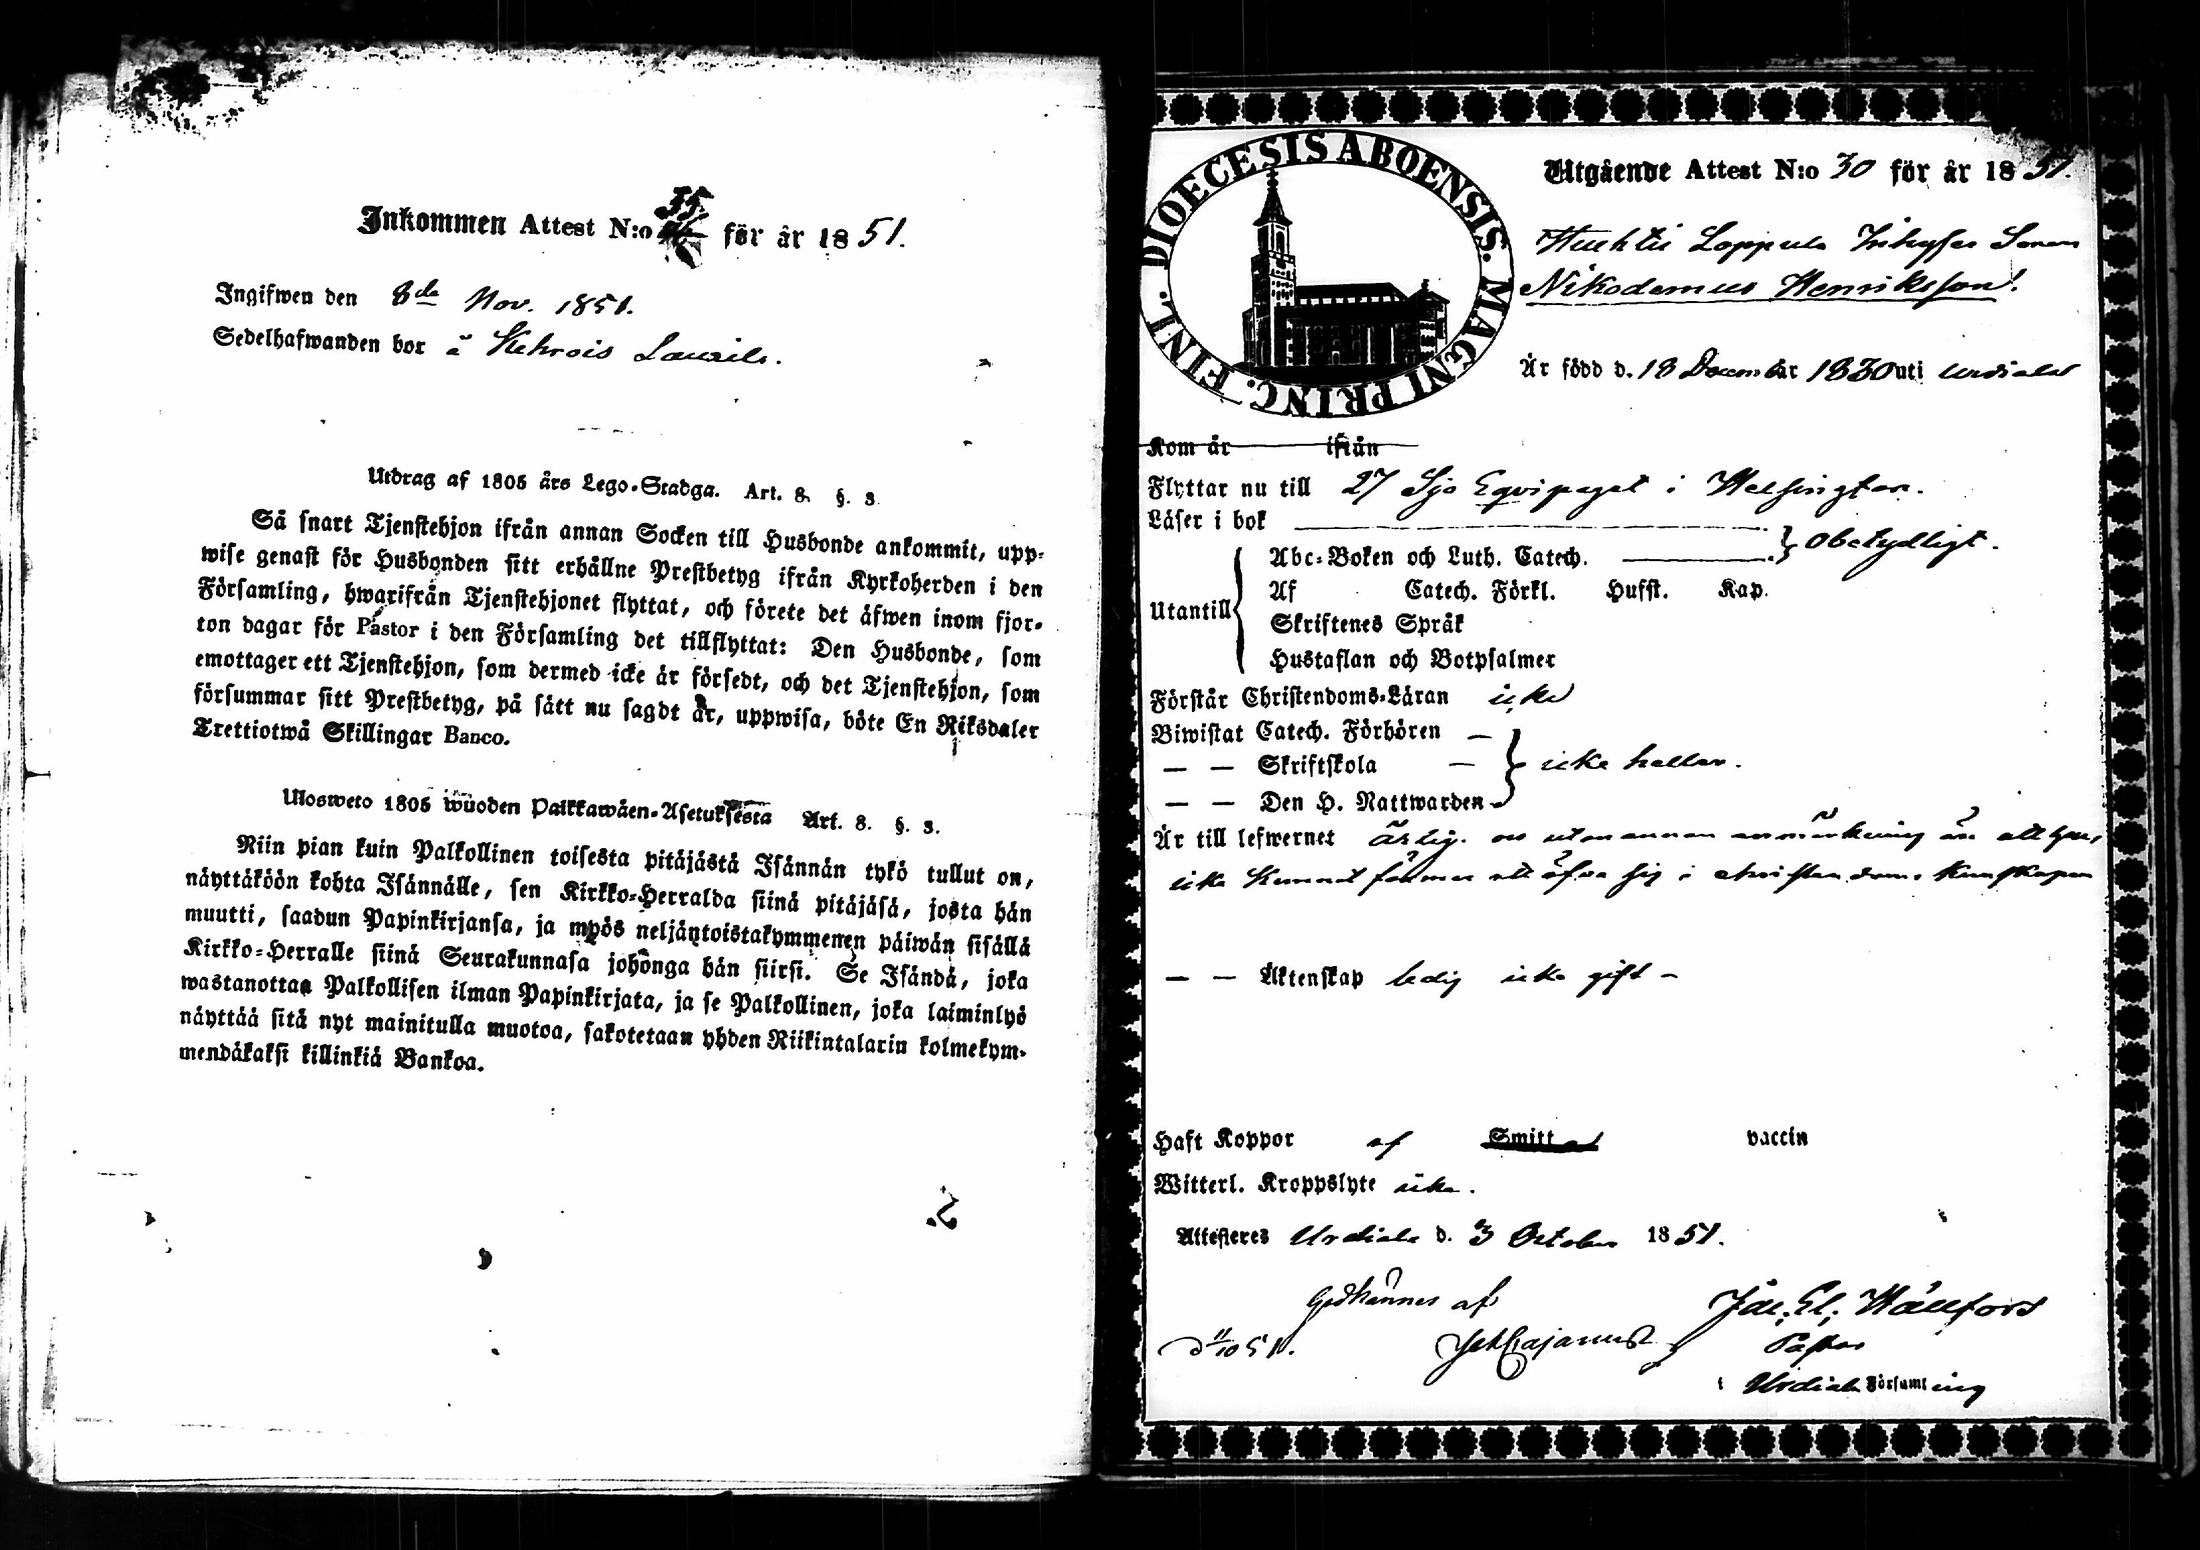 Inkommen Attest N:o 35 för år 1851.
Ingifwen den 8de Nov. 1851.
Sedelhafwanden bor å
Utdrag af 1805 års Lego-Stadga. Art. 8. §. 3.
Så snart Tjenstehjon ifrån annan Socken till Husbonde ankommit, upp-
wise genast för Husbonden sitt erhållne Prestbetyg ifrån Kyrkoherden i den
Församling, hwarifrån Tjenstehjonet flyttat, och förete det äfwen inom fjor-
ton dagar för Pastor i den Församling det tillflyttat: Den Husbonde, som
emottager ett Tjenstehjon, som dermed icke är försedt, och det Tjenstehjon, som
försummar sitt Prestbetyg, på sätt nu sagdt är, uppwisa, böte En Riksdaler
Trettiotwå Skillingar Banco.
Ulosweto 1805 wuoden Palkkawäen-Asetuksesta Art. 8. §. 3.
Niin pian kuin Palkollinen toisesta pitäjästä Isännän tykö tullut on,
näyttäköön kohta Isännälle, sen Kirkko-Herralda siinä pitäjäsä, josta hän
muutti, saadun Papinkirjansa, ja myös neljäntoistakymmenen päiwän sisällä
Kirkko-Herralle siinä Seurakunnasa johonga hän siirsi. Se Isändä, joka
wastanottaa Palkollisen ilman Papinkirjata, ja se Palkollinen, joka laiminlyö
näyttää sitä nyt mainitulla muotoa, sakotetaan yhden Riikintalarin kolmekym-
mendäkaksi killinkiä Bankoa.
DIOECESIS ABOENSIS. MAGNI PRINC. FINL.
Utgående Attest N:o 30 för år 1851.
Loppula
Nikodemus Henriksson.
Är född d. 18 December 1830 uti Urdiala
Kom år ifrån
Flyttar nu till 27 Sjö Eqvipaget i Helsingfors.
Läser i bok
Abc-Boken och Luth. Catech. obetydligt.
Af Catech. Förkl. Hufst. Kap.
Utantill
Skriftenes Språk
Hustaflan och Botpsalmer
Förstår Christendoms-Läran icke
Biwistat Catech. Förhören —
— — Skriftskola — icke heller.
— — Den H. Nattwarden
Är till lefwernet ärlig. utan annan anmärkning än att han
icke kunnat förmås att öfva sig i christendoms kunskapen
— — Äktenskap ledig icke gift -
Haft Koppor af Smitt vaccin
Witterl. Kroppslyte icke.
Attesteres Urdiala d. 3 October 1851.
Godkännes af
d 11/10 51.
Wällfors
Pastor
i Urdiala Församling